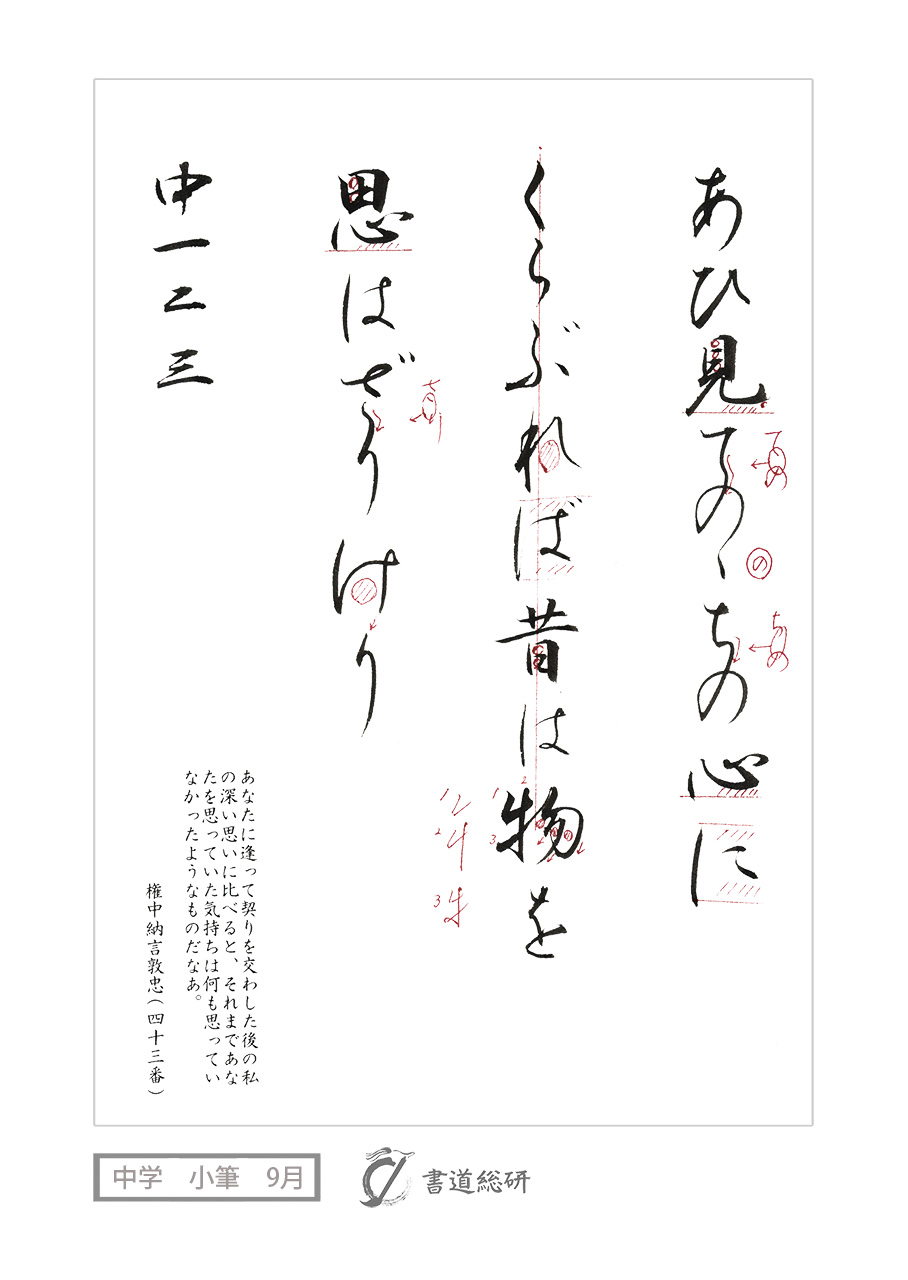 あひ見てのゝちの心に
くらぶれば昔は物を
思はざりけり
中一二三
あなたに逢って契りを交わした後の私
の深い思いに比べると、それまであな
たを思っていた気持ちは何も思ってい
なかったようなものだなあ。
権中納言敦忠（四十三番）
の
1
2
3
1
2
3
中学 小筆 9月
書道総研